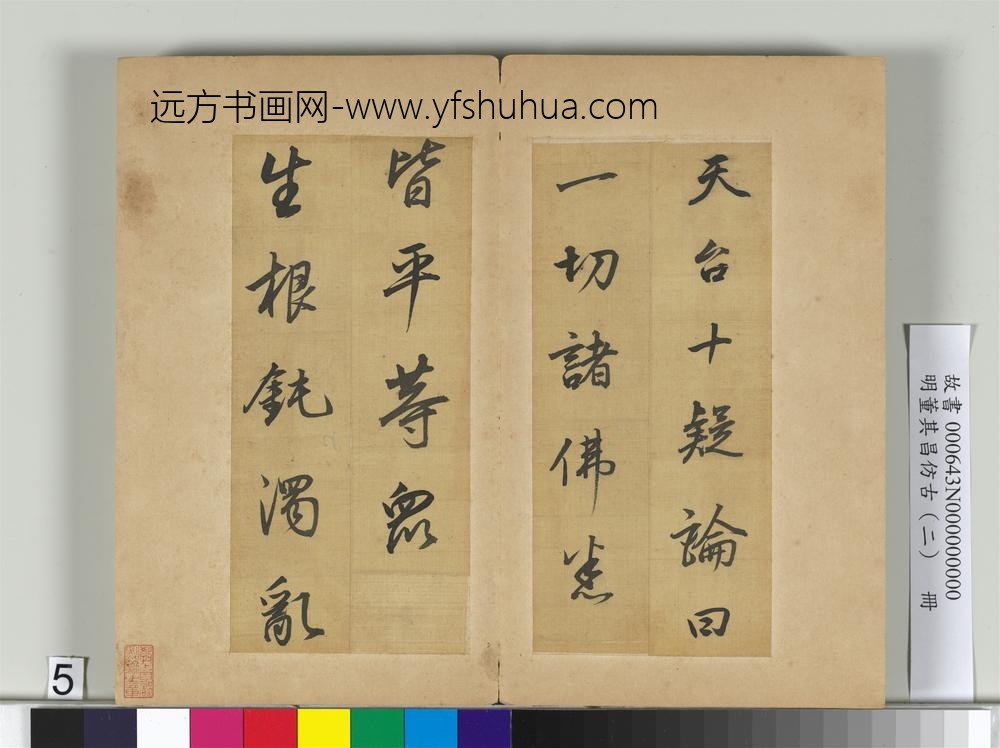 远方书画网-www.yfshuhua.com
天台十疑論曰
一切諸佛悉
皆平等眾
生根鈍濁亂
故書 000643N000000000
明董其昌仿古（二） 冊
5